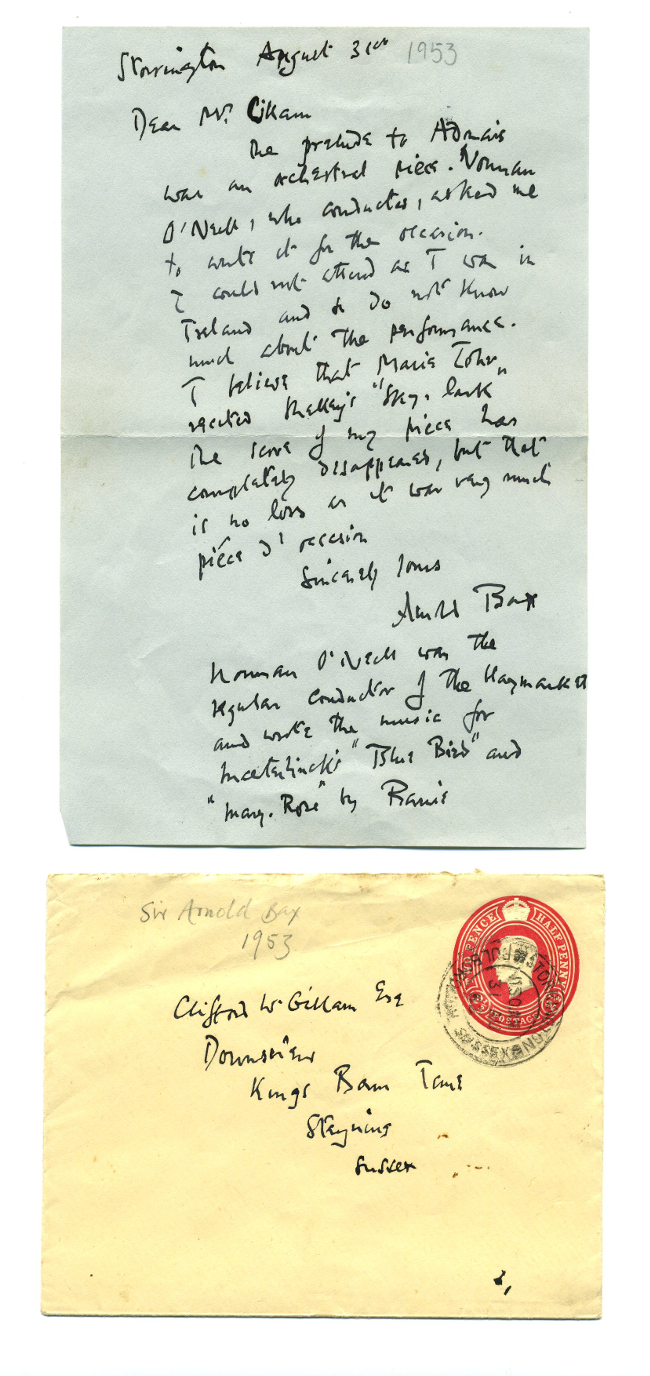 Storrington August 31st 1953
Dear Mr. Gillam
The prelude to Adonais
was an orchestral piece. Norman
O'Neill, who conducted, asked me
to write it for the occasion.
I could not attend as I was in
Ireland and so do not know
much about the performance.
I believe that Marie Lohr
recited Shelley's "Sky-lark"
The score of my piece has
completely disappeared, but that
is no loss as it was very much
piéce d'occasion
Sincerely Yours
Arnold Bax
Norman O'Neill was the
regular conductor of the Haymarket
and wrote the music for
Maeterlinck's "Blue Bird" and
"Mary-Rose" by Barrie
Sir Arnold Bax
1953
TWO PENCE HALFPENNY
POSTAGE
SUSSEX
Clifford W Gillam Esq
Downsview
Kings Barn Lane
Steyning
Sussex